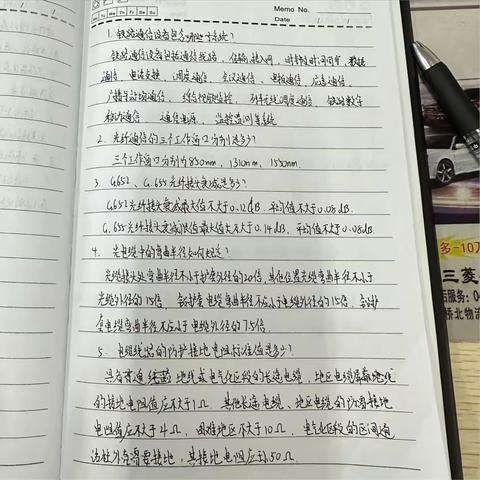 Memo No.
Mo Tu We Th Fr Sa Su
Date / /
1. 铁路通信设备包含哪些子系统?
铁路通信设备包括通信线路、传输、接入网、时钟及时间同步、数据
通信、电话交换、调度通信、会议通信、电报通信、应急通信、
广播与站场通信、综合视频监控、列车无线调度通信、铁路数字
移动通信、通信电源、监控监测等系统
2. 光纤通信的三个工作窗口分别是多少?
三个工作窗口分别为850nm、1310nm、1550nm.
3. G652、G.655光纤接头衰减是多少?
G652光纤接头衰减最大值不大于0.12dB, 平均值不大于0.08dB.
G.655光纤接头衰减限值最大值不大于0.14dB, 平均值不大于0.08dB.
4. 光电缆中的弯曲半径如何规定?
光缆接头处弯曲半径不小于护套外径的20倍, 其他位置光缆弯曲半径不小于
光缆外径的15倍. 铝护套电缆弯曲半径不应小于电缆外径的15倍. 铅护
套电缆弯曲半径不应小于电缆外径的7.5倍.
5. 电缆线路的防护接地电阻标准值是多少?
具有普通 地线或电气化区段的长途电缆、地区电缆屏蔽地线
的接地电阻值应不大于1Ω. 其他长途电缆、地区电缆的防雷接地
电阻值应不大于4Ω, 困难地区不大于10Ω. 电气化区段的区间通
话柱外壳需要接地, 其接地电阻应 50Ω.
多-10万
三菱
后服务: 04
桥北物流